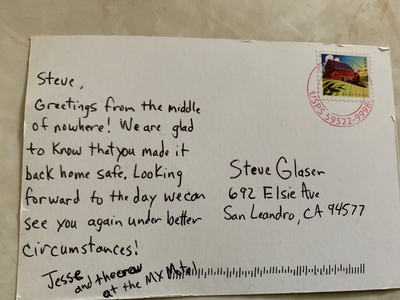 Steve,
Greetings from the middle
of nowhere! We are glad
to know that you made it
back home safe. Looking
forward to the day we can
see you again under better
circumstances!
Jesse
and the crew
at the MX Motel
USPS 59522-9998
Steve Glaser
692 Elsie Ave
San Leandro, CA 94577